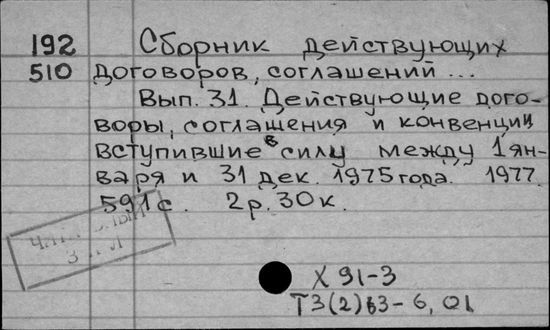 192 Сборник действующих
510 договоров, соглашений ...
Вып. 31. Действующие дого-
воры, соглашения и конвенции
вступившие в силу между 1 ян-
варя и 31 дек. 1975 года. 1977.
591 с. 2 р. 30 к.
Х 91-3
Т3(2)в3-6, 01